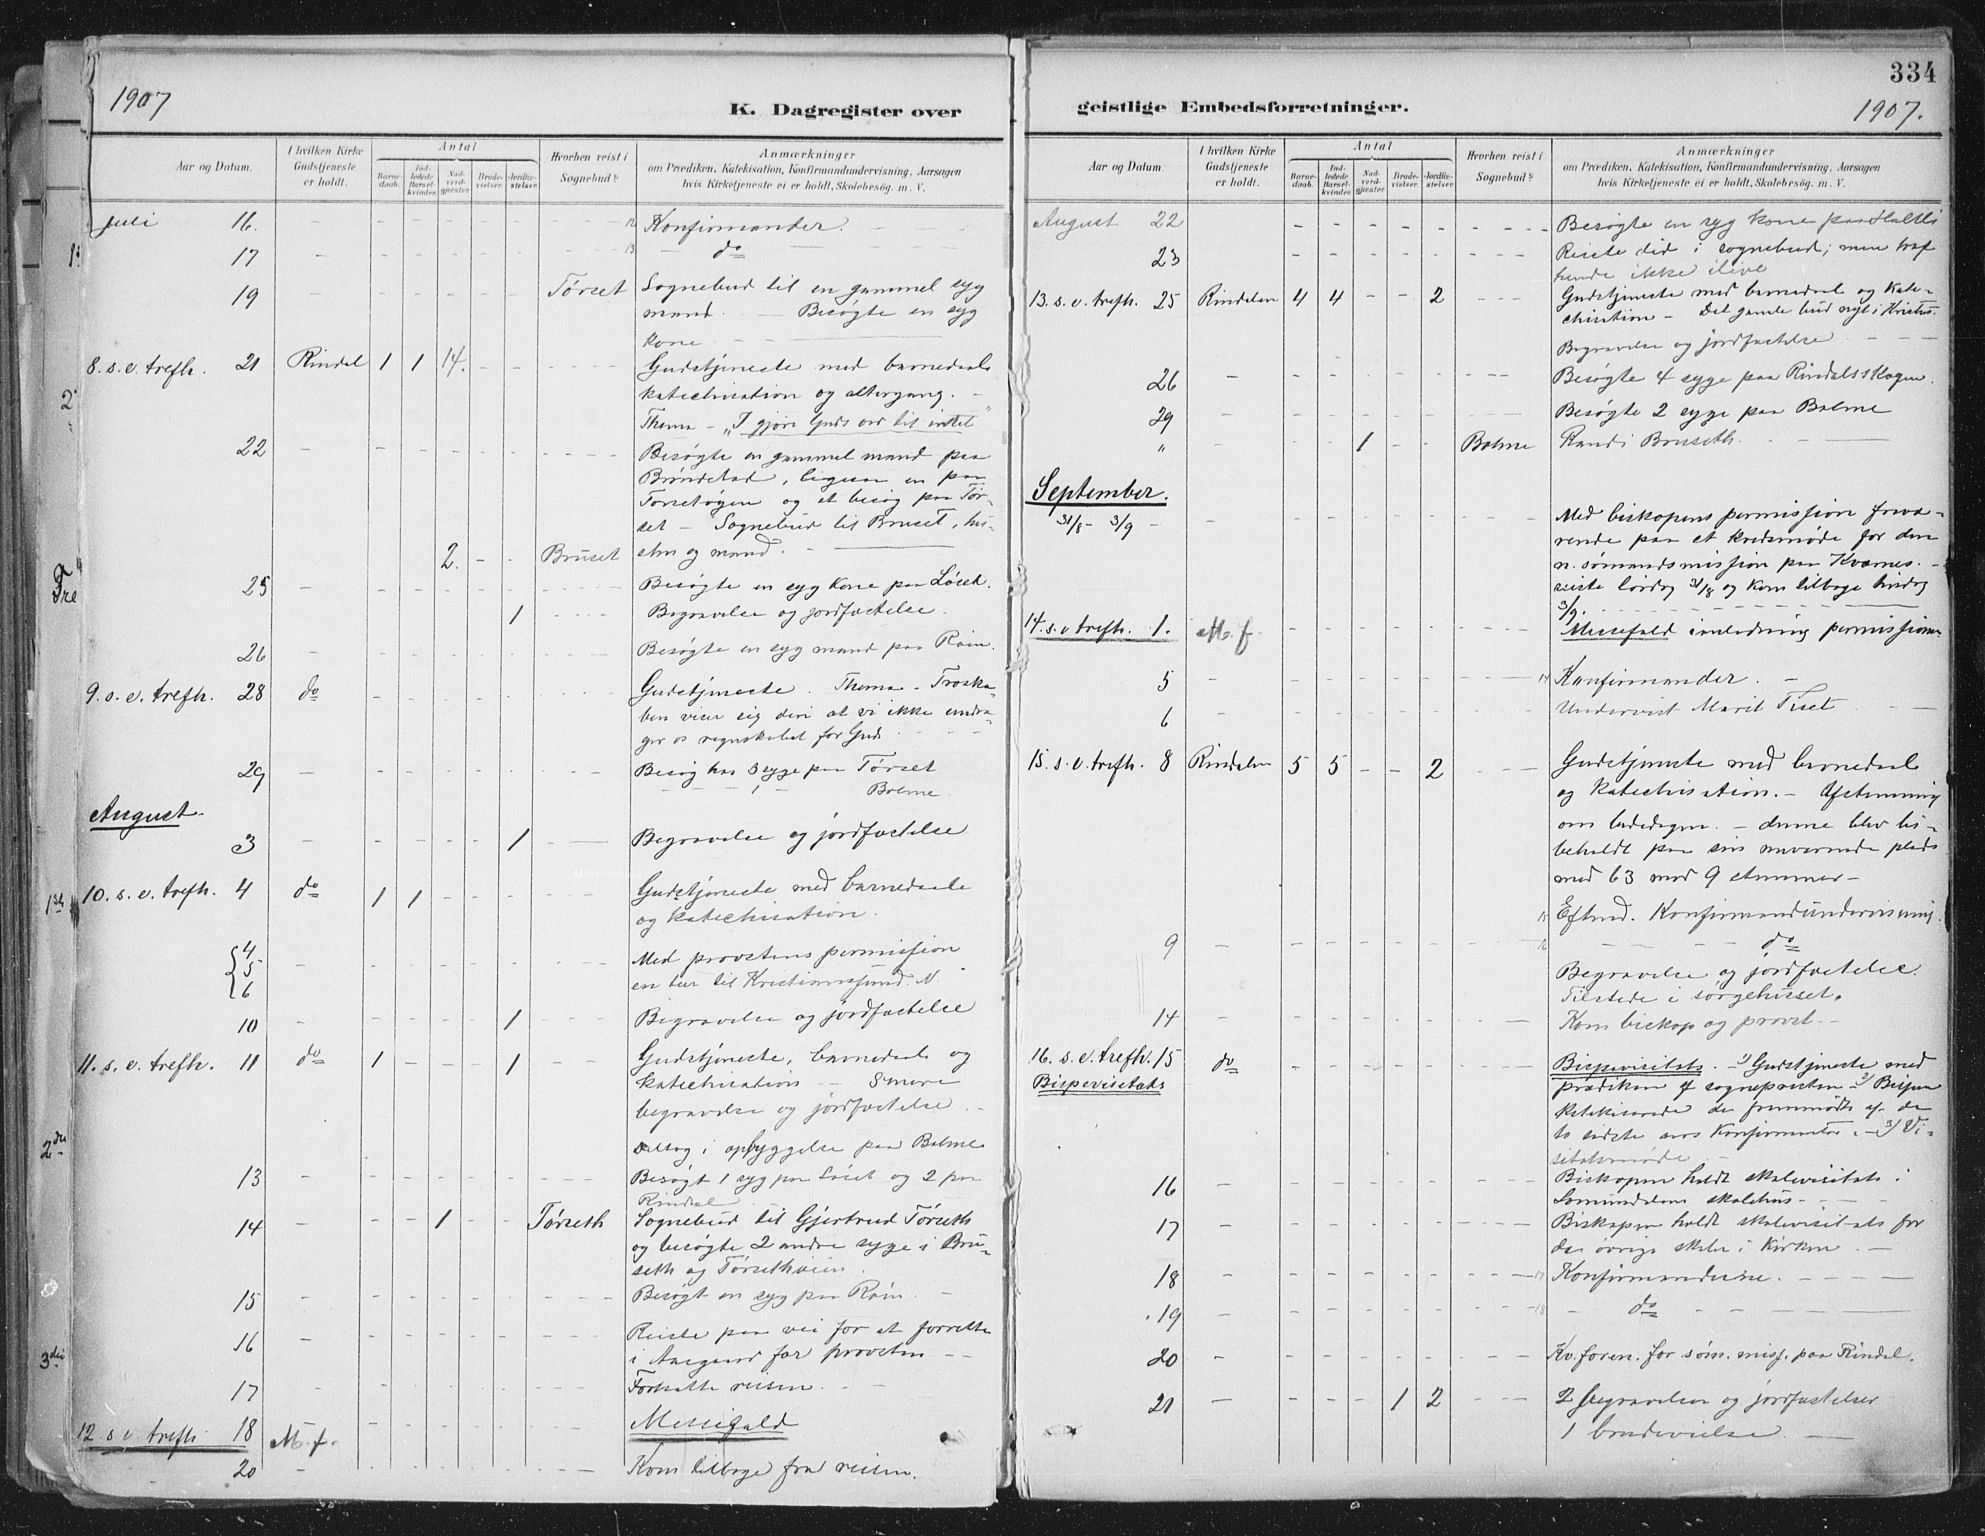 1907
K. Dagregister over
Aar og Datum.
I hvilken Kirke Gudstjeneste er holdt.
Antal
Barnedaab.
Indledede Barselkvinder.
Nadverdgjester.
Brudevielser.
Jordfæstelser.
Hvorhen reist i Sognebud?
Anmærkninger
om Prædiken, Katekisation, Konfirmandundervisning, Aarsagen
hvis Kirketjeneste ei er holdt, Skolebesøg. m. V.
Juli 16. 12 Konfirmander.
17 13 do
19 Tørset Sognebud til en gammel syg
mand. – Besøgte en syg
kone.
8. s. e. trefh. 21 Rindal 1 1 14. Gudstjeneste med barnedaab
katechisation og altergang. –
Thema – „I gjøre Guds ord til intet"
22 Besøgte en gammel mand paa
Brøndstad, ligesaa en paa
Tørsetøgen og et besøg paa Tør-
set – Sognebud til Bruset, hu-
2. Bruset stru og mand.
25 Besøgte en syg kone paa Løset.
1 Begravelse og jordfæstelse.
26 Besøgte en syg mand paa Røin.
9. s. e. trefh. 28 do Gudstjeneste. Thema – Troska-
ben viser sig deri at vi ikke unddra-
ger os regnskabet for Gud.
29 Besøg hos 3 syge paa Tørset
1 Bolme
August.
3 1 Begravelse og jordfæstelse
10. s. e. trefh. 4 do 1 1 Gudstjeneste med barnedaab
og katechisation.
4
5
6 Med provstens permission
en tur til Kristianssund. N.
10 1 Begravelse og jordfæstelse
11. s. e. trefh. 11 do 1 1 Gudstjeneste, barnedaab og
katechisation –
begravelse og jordfæstelse.
Deltog i opbyggelse paa Bolme
13 Besøgt 1 syg paa Løset og 2 paa
Rindal
14 1 Tørseth Sognebud til Gjertrud Tørseth
og besøgte 2 andre syge i Bru-
seth og Tørsethveien.
15 Besøgt en syg paa Røin.
16 Reiste paa vei for at forrette
i Aasgaard for provsten
17 Fortsatte reisen.
12 s. e. trefh. 18 M. f. Messefald
20 Kom tilbage fra reisen.
334
geistlige Embedsforretninger.
1907.
Aar og Datum.
I hvilken Kirke Gudstjeneste er holdt.
Antal
Barnedaab.
Indledede Barselkvinder.
Nadverdgjester.
Brudevielser.
Jordfæstelser.
Hvorhen reist i Sognebud?
Anmærkninger
om Prædiken, Katekisation, Konfirmandundervisning, Aarsagen
hvis Kirketjeneste ei er holdt, Skolebesøg. m. V.
August 22 Besøgte en syg kone paa Haltli
23 Reiste did i sognebud; men traf
hende ikke ilive
13. s. e. trefh. 25 Rindalen 4 4 2 Gudstjeneste med barnedaab og kate-
chisation – Det gamle bud nyt i Kristus.
Begravelse og jordfæstelse
26 Besøgte 4 syge paa Rindalsskogen.
29 Besøgte 2 syge paa Bolme
" 1 Bolme Randi Bruseth.
September.
31/8 – 3/9 – Med biskopens permission fravæ-
rende paa et kredsmøde for den
n. sømandsmission paa Kvernes. –
reiste lørdag 31/8 og kom tilbage tirsdag
3/9.
14. s. e. trefh. 1. M. f. Messefald i anledning permissionen
5 14 Konfirmander. –
6 Undervist Marit Tiset
15. s. e. trefh. 8 Rindalen 5 5 2 Gudstjeneste med barnedaab
og katechisation. – Afstemning
om bededagen. – denne blev bi-
beholdt paa sin nuværende plads
med 63 mod 9 stemmer –
15 Eftmd. Konfirmandundervisning.
9 16 do
Begravelse og jordfæstelse.
Tilstede i sørgehuset.
14 Kom biskop og provst. –
16. s. e. trefh. 15 do Bispevisitats. – 1) Gudstjeneste med
Bispevisitats prædiken af sognepresten – 2) Bispen
katekiserede de fremmødte af de
to sidste aars konfirmanter. – 3) Vi-
sitatsmøde
16 Biskopen holdt skolevisitats i
Romundstadens skolehus
17 Biskopen holdt skolevisitats for
de øvrige skoler i kirken. –
18 17 Konfirmanderne.
19 18 do
20 Kv. foren. for søm. miss. paa Rindal.
21 1 2 2 begravelser og jordfæstelser
1 brudevielse